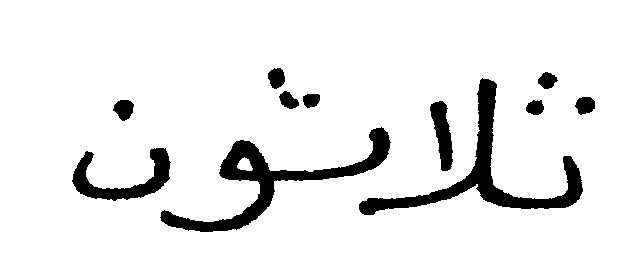 ثلاثون